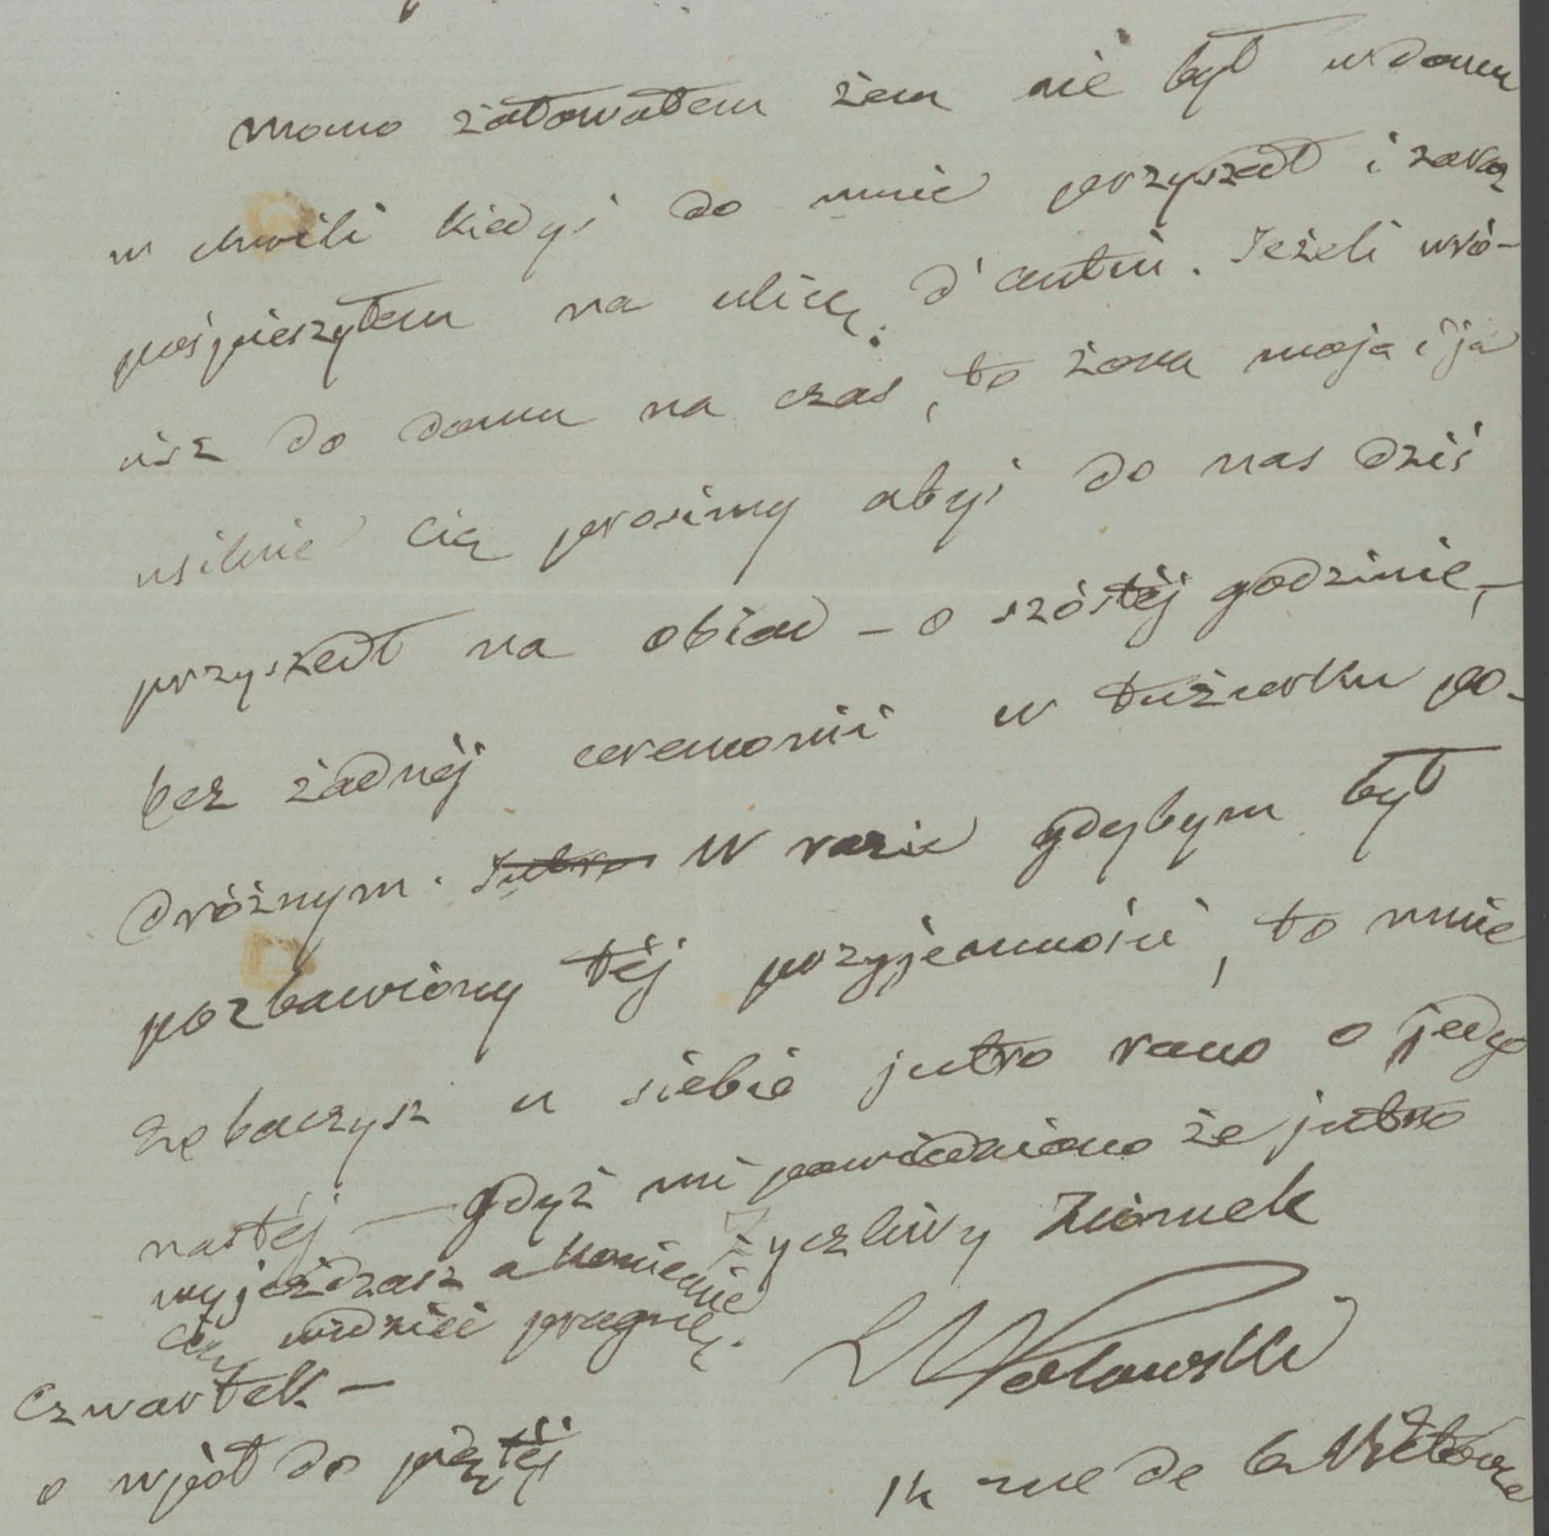 Mocno żałowałem żem nie był w domu
w chwili kiedyś do mnie przyszedł i zaraz
pośpieszyłem na ulicę d'Antin. Jeżeli wró-
cisz do domu na czas, to żona moja i ja
usilnie Cię prosimy abyś do nas dziś
przyszedł na obiad – o szóstéj godzinie, –
bez żadnéj ceremonii w tużurku po-
dróżnym. Jutro W razie gdybym był
pozbawiony téj przyjemności, to mnie
zobaczysz u siebie jutro rano o jedy
nastéj – gdyż mi powiedziano że jutro
wyjeżdżasz a koniecznie
Cię widzieć pragnę.
życzliwy Ziomek
L Wołowski
Czwartek –
o wpół do piątéj
14 rue de la Victoire